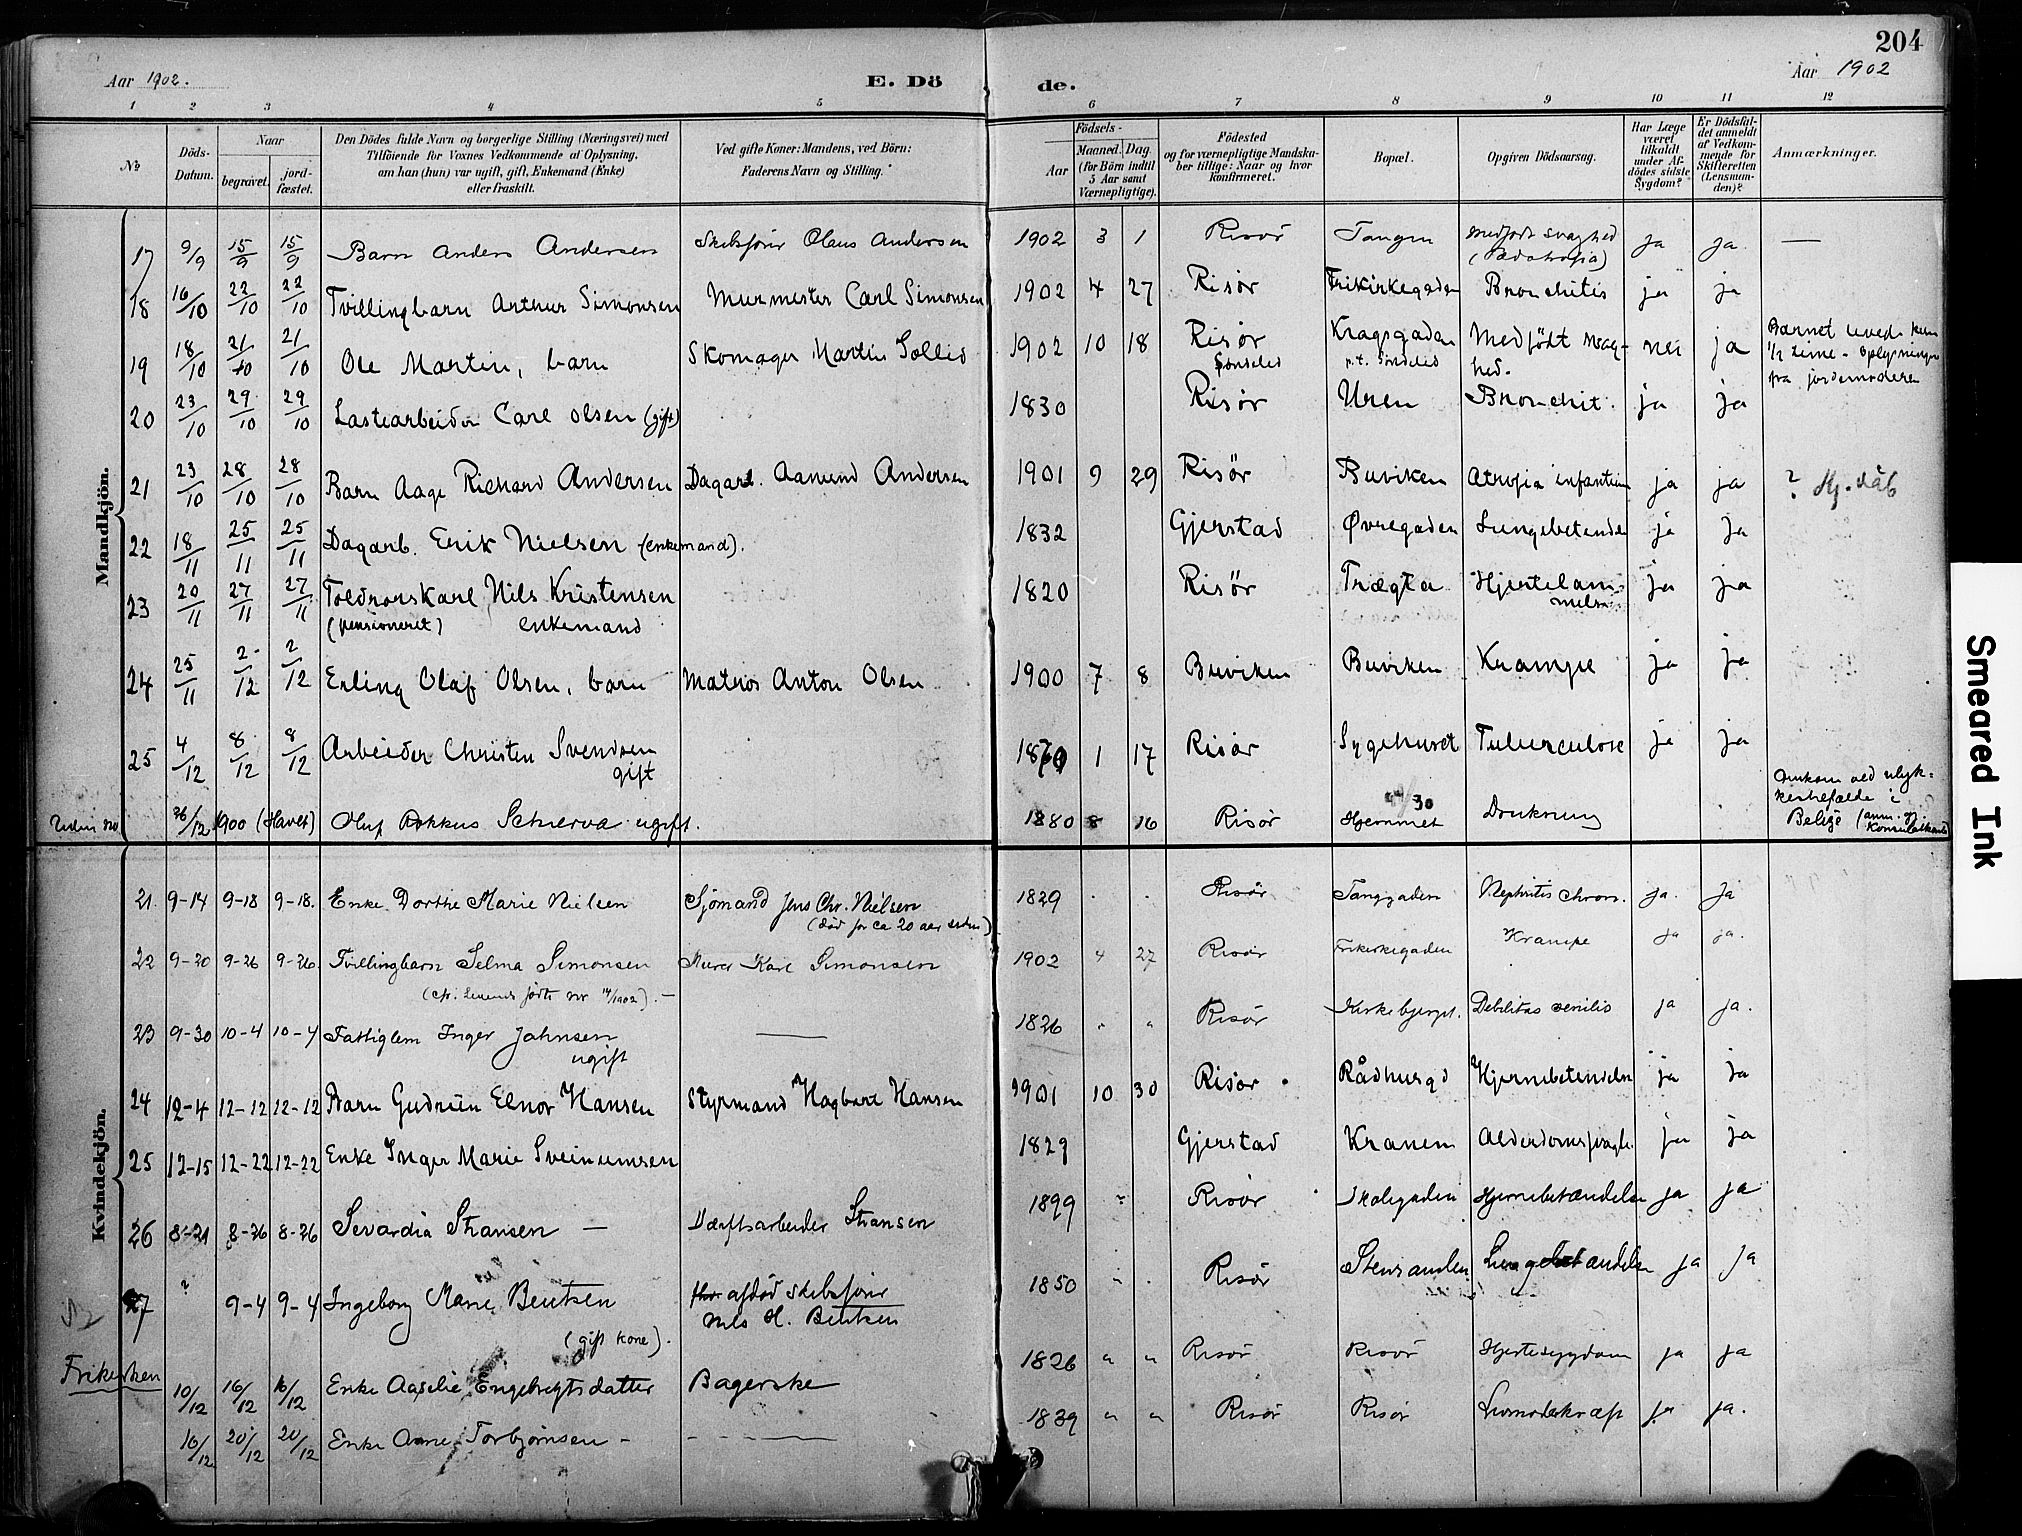 204
Aar 1902.
E. Dö
de.
Aar 1902
1 2 3 4 5 6 7 8 9 10 11 12
No
Döds-Datum.
Naar
begravet.
jordfæstet.
Den Dödes fulde Navn og borgerlige Stilling (Næringsvei) med
Tilföiende for Voxnes Vedkommende af Oplysning,
om han (hun) var ugift, gift, Enkemand (Enke)
eller fraskilt.
Ved gifte Koner: Mandens, ved Börn:
Faderens Navn og Stilling.
Födsels-
Aar
Maaned. Dag
(for Börn indtil
5 Aar samt
Værnepligtige).
Födested
og for værnepligtige Mandskaber tillige: Naar og hvor
konfirmeret.
Bopæl.
Opgiven Dödsaarsag.
Har Læge
været
tilkaldt
under Afdödes sidste
Sygdom?
Er Dödsfaldet anmeldt
af Vedkommende for
Skifteretten
(Lensmanden)?
Anmærkninger.
Mandkjön.
17 9/9 15/9 15/9 Barn Anders Andersen Skibsfører Olaus Andersen 1902 3 1 Risør Tangen Medfødt svaghed ja ja. —
18 16/10 22/10 22/10 Tvillingbarn Arthur Simonsen Murmester Carl Simonsen 1902 4 27 Risør Frikirkegaden Bronchitis ja ja
19 18/10 21/10 21/10 Ole Martin, barn Skomager Martin Sollid 1902 10 18 Risør Kragsgaden Medfödt svag- nei ja Barnet levede kun
Søndeled p.t. Søndeled hed. 1/2 time - oplysninger
fra jordemoderen
20 23/10 29/10 29/10 Lastearbeider Carl Olsen (gift) 1830 Risør Uren Bronchit. ja ja
21 23/10 28/10 28/10 Barn Aage Richard Andersen Dagarb. Aamund Andersen 1901 9 29 Risör Buviken Atrofia infantium ja ja ? Hj. dåb
22 18/11 25/11 25/11 Dagarb. Erik Nielsen (enkemand). 1832 Gjerstad Øvregaden Lungebetændelse ja ja
23 20/11 27/11 27/11 Toldrorskarl Nils Kristensen 1820 Risör Trægta Hjertelam- ja ja
(pensioneret) enkemand melse
24 25/11 2/12 2/12 Erling Olaf Olsen, barn Matros Anton Olsen 1900 7 8 Buviken Buviken Krampe ja ja
25 4/12 8/12 8/12 Arbeider Christen Svendsen 1870 1 17 Risør Sygehuset Tuberculose ja ja
gift
Uden no 26/12 1900 (Havet) Oluf ugift. 1880 8 16 Risør Hjemmet Drukning Omkom ved ulyk-
kestilfælde i
Belize
Kvindekjön.
21. 9-14 9-18 9-18. Enke Dorthe Marie Nielsen Sjømand Jens Chr. Nielsen 1829 . . Risör Tanggaden Nephritis chron. ja. Ja
(død for ca 20 aar siden)
22 9-20 9-26 9-26. Tvillingbarn Selma Simonsen Murer Karl Simonsen 1902 4 27 Risør Frikirkegaden Krampe ja ja.
(cfr. Levende fødte no 14/1902). —
23 9-30 10-4 10-4 Fattiglem Inger Jahnsen — 1826 " " Risør Kirkebjerget. Debilitas senilis ja ja.
ugift
24 12-4 12-12 12-12 Barn Gudrun Elnor Hansen Styrmand Hagbart Hansen 1901 10 30 Risør Rådhusgd Hjernebetændelse ja ja
25 12-15 12-22 12-22 Enke Inger Marie Sveinumsen 1829 Gjerstad Kranen Alderdomssvaghed ja ja
26 8-21 8-26 8-26 Sevardia Stransen — Værftsarbeider Stransen 1899 Risør Skolegaden Hjernebetændelse ja ja
27 ? 9-4 9-4 Ingeborg Marie Bentsen afdød skibsfører 1850 Risør Stensanden Lungebetændelse ja Ja
(gift kone). Nils H. Bentsen
Frikirken
10/12 16/12 16/12 Enke Aaselie Engebregtsdatter Bagerske 1826 " " Risør Risør Hjertesygdom ja ja
16/12 20/12 20/12 Enke Anne Torbjørnsen — — — 1839 " " Risør Risør Livmoderkræft ja ja.
Smeared Ink